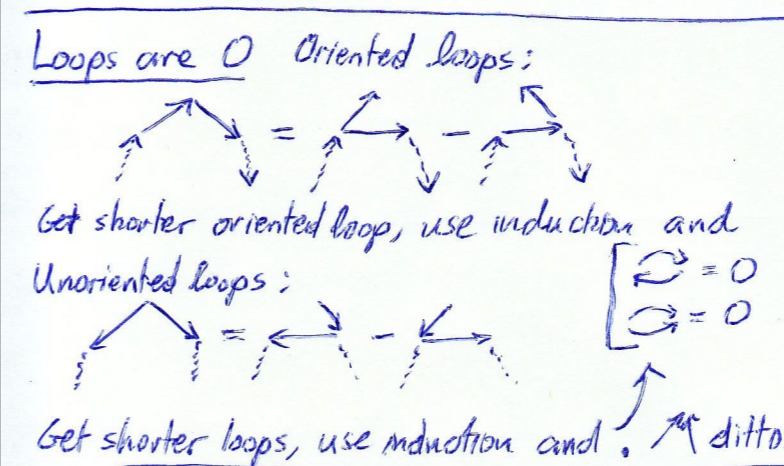 Loops are 0 Oriented loops:
= -
Get shorter oriented loop, use induction and
Unoriented loops:
= 0
= 0
= -
Get shorter loops, use induction and . ditto